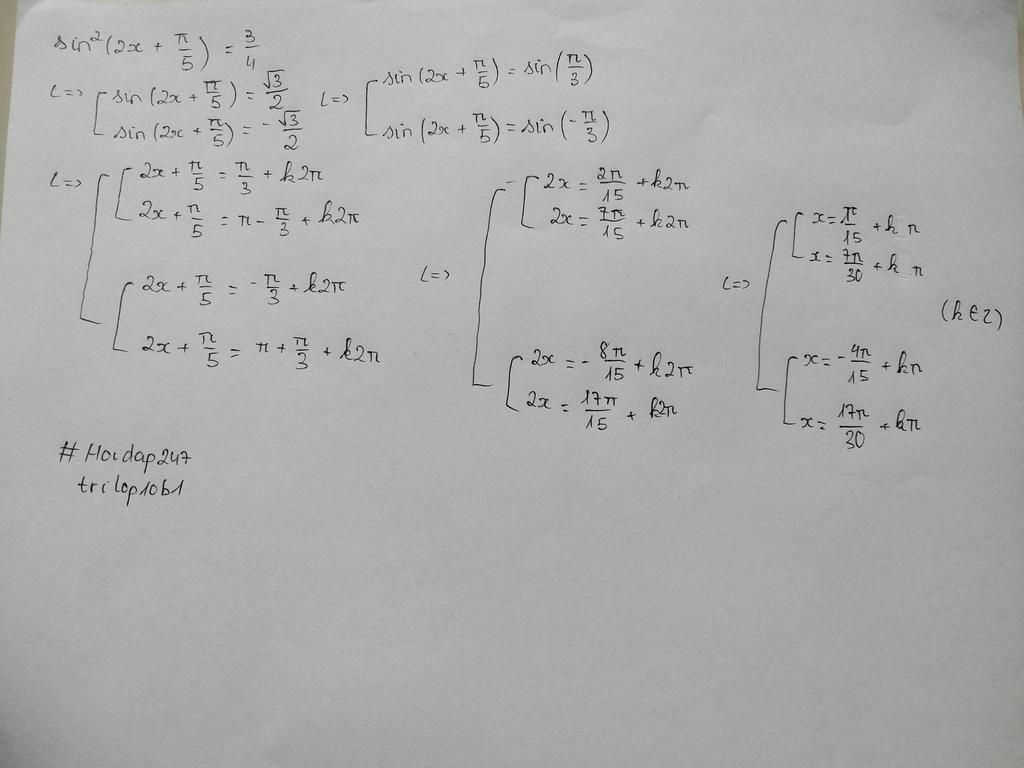 sin²(2x + π/5) = 3/4
<=> [ sin(2x + π/5) = √3/2 <=> [ sin(2x + π/5) = sin(π/3)
sin(2x + π/5) = -√3/2 sin(2x + π/5) = sin(-π/3)
<=> [ [ 2x + π/5 = π/3 + k2π
2x + π/5 = π - π/3 + k2π
[ 2x + π/5 = -π/3 + k2π
2x + π/5 = π + π/3 + k2π
<=> [ [ 2x = 2π/15 + k2π
2x = 7π/15 + k2π
[ 2x = -8π/15 + k2π
2x = 17π/15 + k2π
<=> [ [ x = π/15 + kπ
x = 7π/30 + kπ
[ x = -4π/15 + kπ
x = 17π/30 + kπ
(k∈Z)
#Hoidap247
trilop10b1